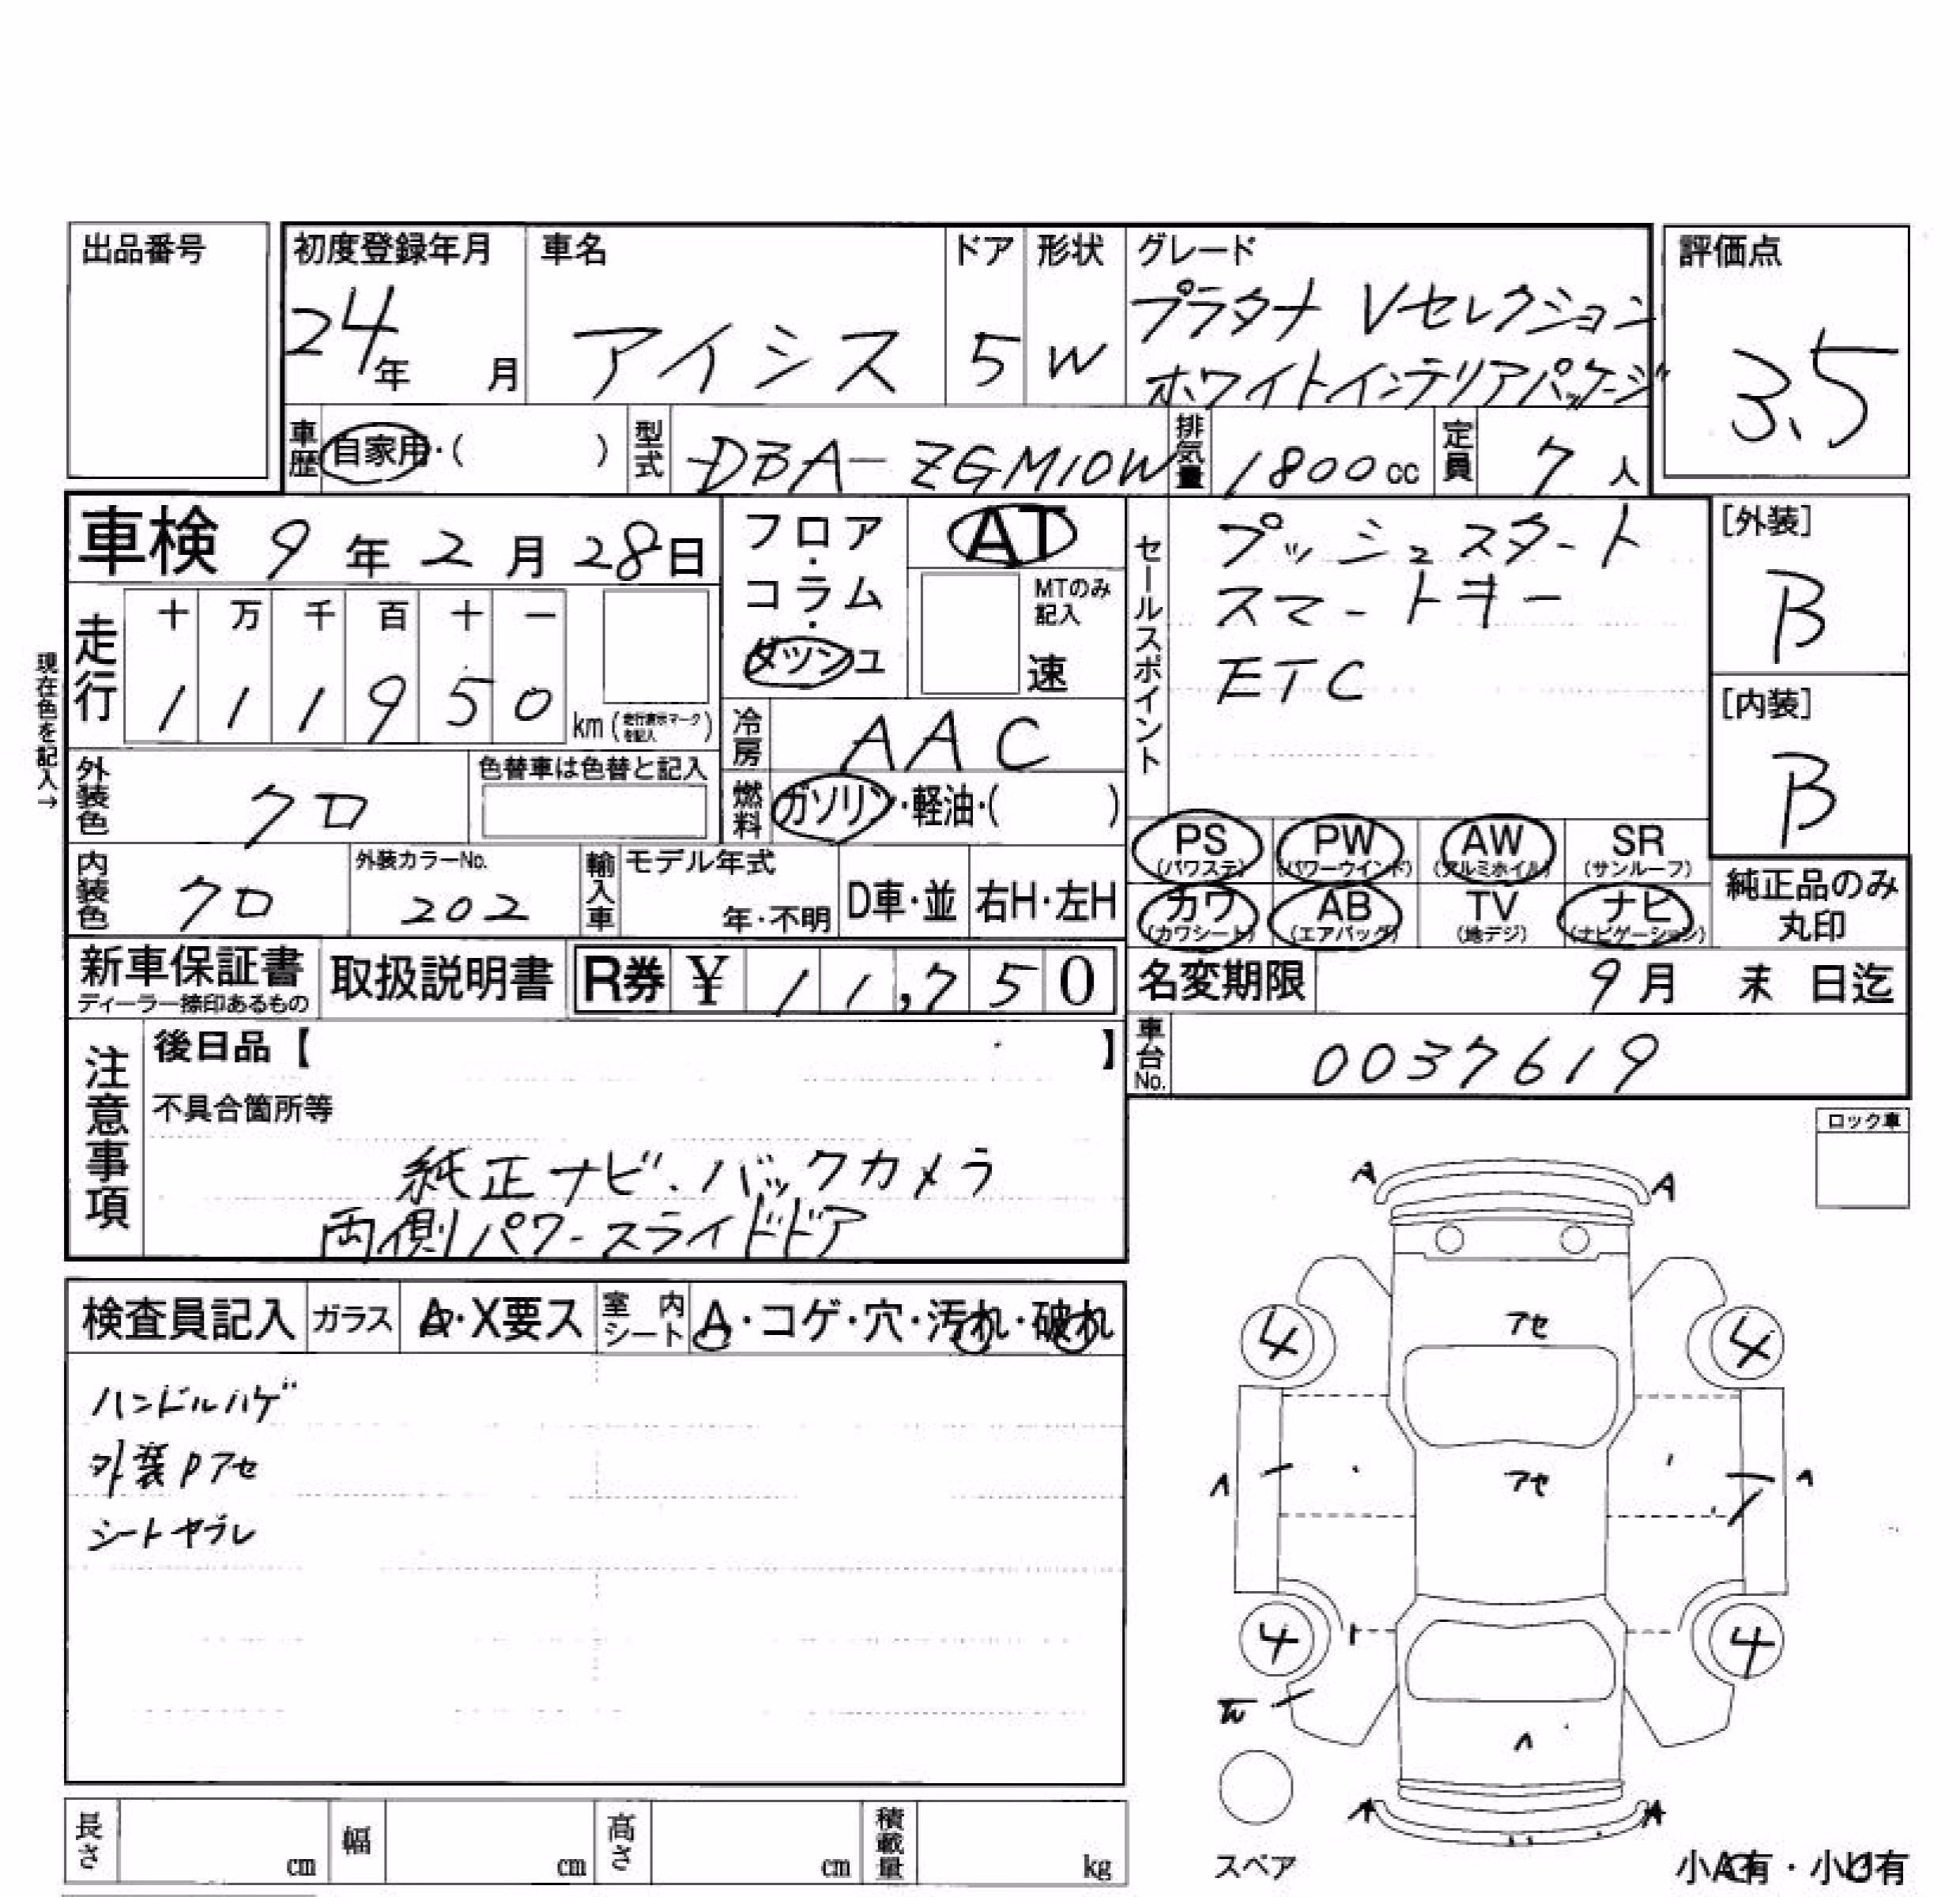 出品番号
初度登録年月 24年 月
車名 アイシス
ドア 5
形状 W
グレード プラタナ Vセレクション
ホワイトインテリアパッケージ
評価点 3.5
車歴 自家用・( )
型式 DBA-ZGM10W
排気量 1800cc
定員 7人
車検 9年2月28日
フロア・コラム・ダッシュ
AT
MTのみ記入
速
セールスポイント
プッシュスタート
スマートキー
ETC
[外装] B
[内装] B
現在色を記入→
走行
十 万 千 百 十 一
1 1 1 9 5 0 km(走行表示マークを記入)
冷房 AAC
外装色 クロ
色替車は色替と記入
燃料 ガソリン・軽油・( )
PS (パワステ)
PW (パワーウインド)
AW (アルミホイル)
SR (サンルーフ)
カワ (カワシート)
AB (エアバッグ)
TV (地デジ)
ナビ (ナビゲーション)
純正品のみ丸印
内装色 クロ
外装カラーNo. 202
輸入車 モデル年式
年・不明
D車・並
右H・左H
新車保証書
ディーラー捺印あるもの
取扱説明書
R券 ¥ 11,750
名変期限 9月 末 日迄
車台No. 0037619
注意事項
後日品【 】
不具合箇所等
純正ナビ・バックカメラ
両側パワースライドドア
ロック車
検査員記入
ガラス A・X要ス
室内シート A・コゲ・穴・汚れ・破れ
ハンドルハゲ
外装Pアセ
シートヤブレ
A A
アセ
4 4
アセ
4 4
A A
スペア
小A有・小U有
長さ cm
幅 cm
高さ cm
積載量 kg